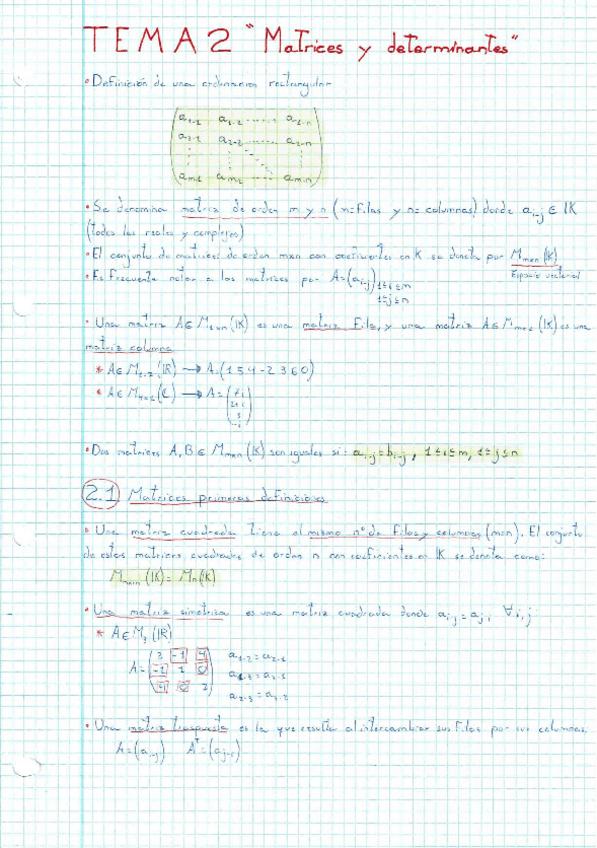 TEMA 2 "Matrices y determinantes"
• Definición de una ordenacion rectangular
a₁₋₁ a₁₋₂ ...... a₁₋ₙ
a₂₋₁ a₂₋₂ ...... a₂₋ₙ
aₘ₋₁ aₘ₋₂ ..... aₘ₋ₙ
• Se denomina matriz de orden m y n (m=filas y n=columnas) donde aᵢ₋ⱼ ∈ IK
(todos los reales y complejos)
• El conjunto de matrices de orden mxn con coeficientes en K se denota por Mₘₓₙ (K)
Espacio vectorial
• Es frecuente notar a las matrices por A=(aᵢ₋ⱼ) 1≤i≤m
1≤j≤n
• Una matriz A∈M₁ₓₙ(IK) es una matriz fila, y una matriz A∈Mₘₓ₁(IK) es una
matriz columna
* A∈M (IR) → A=(1 5 4 -2 3 6 0)
* A∈M (C) → A=
• Dos matrices A, B ∈ Mₘₓₙ (IK) son iguales si: aᵢ₋ⱼ=bᵢ₋ⱼ , 1≤i≤m, 1≤j≤n
2.1 Matrices primeras definiciones
• Una matriz cuadrada tiene el mismo nº de filas y columnas (m=n). El conjunto
de estas matrices cuadradas de orden n con coeficientes en IK se denota como:
Mₙₓₙ (IK) = Mₙ(K)
• Una matriz simetrica es una matriz cuadrada donde aᵢ₋ⱼ=aⱼ₋ᵢ ∀i,j
* A∈M₃(IR)
3 -1 4 a₁₋₂=a₂₋₁
A= -1 1 0 a₁₋₃=a₃₋₁
4 0 2 a₂₋₃=a₃₋₂
• Una matriz traspuesta es la que resulta al intercambiar sus filas por sus columnas.
A=(aᵢ₋ⱼ) Aᵀ=(aⱼ₋ᵢ)